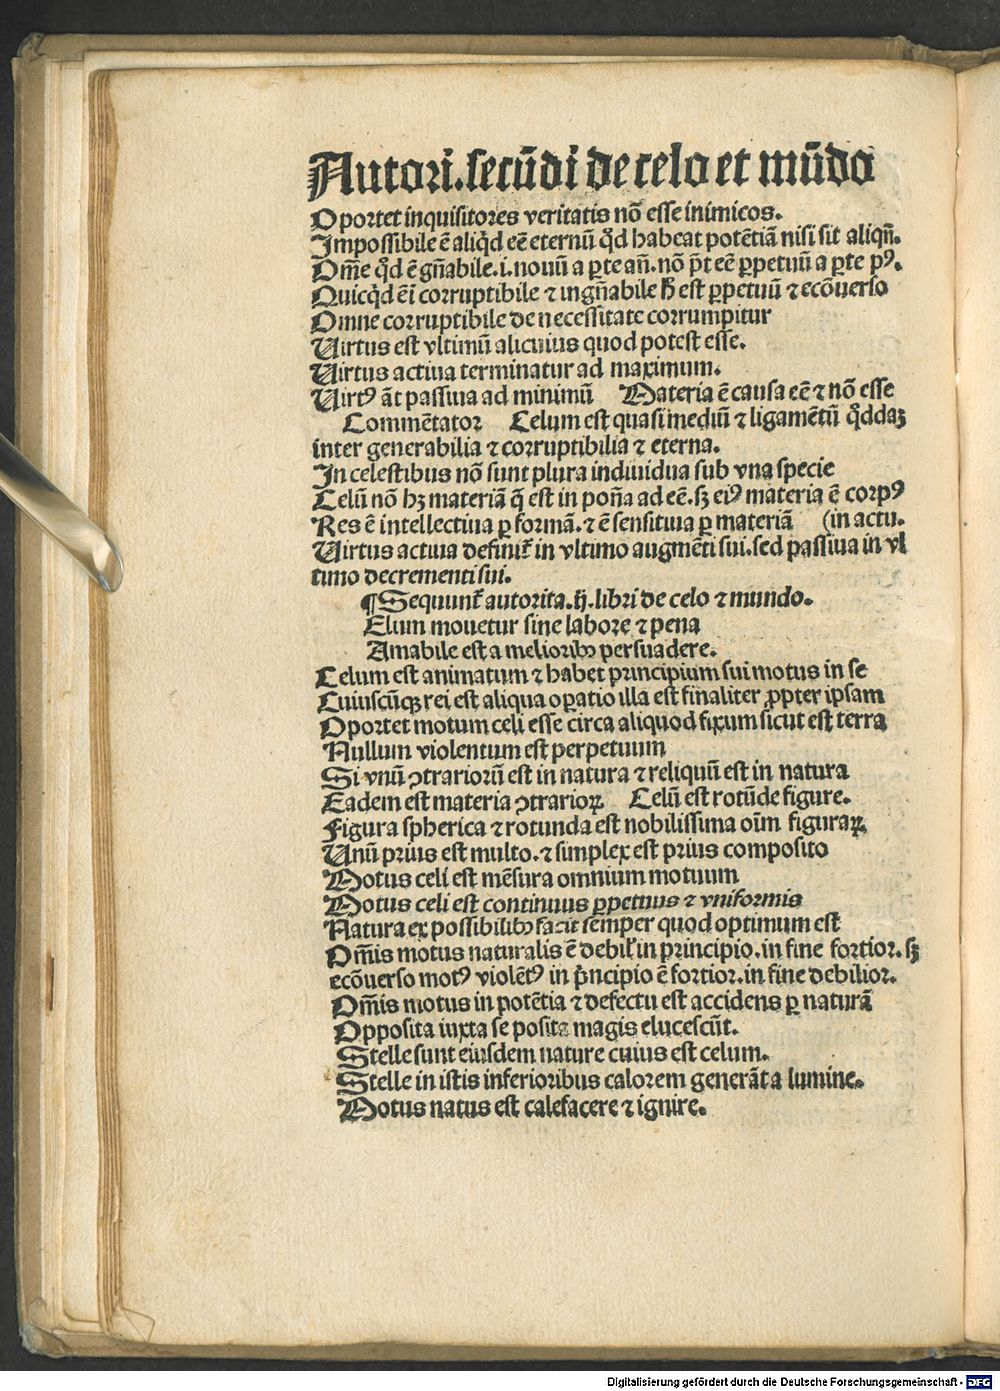 Autori. secūdi de celo et mūdo
Oportet inquisitores veritatis nō esse inimicos.
Impossibile ē aliqđ eē eternū qđ habeat potētiā nisi sit aliqñ.
Om̄e qđ ē gñabile .i. nouū a ꝑte añ. nō p̄t eē ꝑpetuū a ꝑte pꝰ.
Quicqđ eī corruptibile ⁊ ingñabile ħ est ꝑpetuū ⁊ ecōuerso
Omne corruptibile de necessitate corrumpitur
Uirtus est vltimū alicuius quod potest esse.
Uirtus actiua terminatur ad maximum.
Uirtꝰ āt passiua ad minimū Materia ē causa eē ⁊ nō esse
Commētator Celum est quasi mediū ⁊ ligamētū qđdaꝫ
inter generabilia ⁊ corruptibilia ⁊ eterna.
In celestibus nō sunt plura indiuidua sub vna specie
Celū nō hꝫ materiā q̄ est in poña ad eē. sꝫ eiꝰ materia ē corpꝰ
Res ē intellectiua ꝑ formā. ⁊ ē sensitiua ꝑ materiā (in actu.
Uirtus actiua definit᷑ in vltimo augmēti sui. sed passiua in vl
timo decrementi sui.
¶ Sequunt᷑ autorita. ij. libri de celo ⁊ mundo.
Elum mouetur sine labore ⁊ pena
Amabile est a melioribꝰ persuadere.
Celum est animatum ⁊ habet principium sui motus in se
Cuiuscūqꝫ rei est aliqua oꝑatio illa est finaliter ꝓpter ipsam
Oportet motum celi esse circa aliquod fixum sicut est terra
Nullum violentum est perpetuum
Si vnū ꝯtrariorū est in natura ⁊ reliquū est in natura
Eadem est materia ꝯtrarioꝝ Celū est rotūde figure.
Figura spherica ⁊ rotunda est nobilissima oīm figuraꝝ.
Unū prius est multo. ⁊ simplex est prius composito
Motus celi est mēsura omnium motuum
Motus celi est continuus ꝑpetuus ⁊ vniformis
Natura ex possibilibꝰ facit semper quod optimum est
Om̄is motus naturalis ē debil᷑ in principio. in fine fortior. sꝫ
ecōuerso motꝰ violētꝰ in p̄ncipio ē fortior. in fine debilior.
Om̄is motus in potētia ⁊ defectu est accidens ꝑ naturā
Opposita iuxta se posita magis elucescūt.
Stelle sunt eiusdem nature cuius est celum.
Stelle in istis inferioribus calorem generāt a lumine.
Motus natus est calefacere ⁊ ignire.
Digitalisierung gefördert durch die Deutsche Forschungsgemeinschaft - DFG